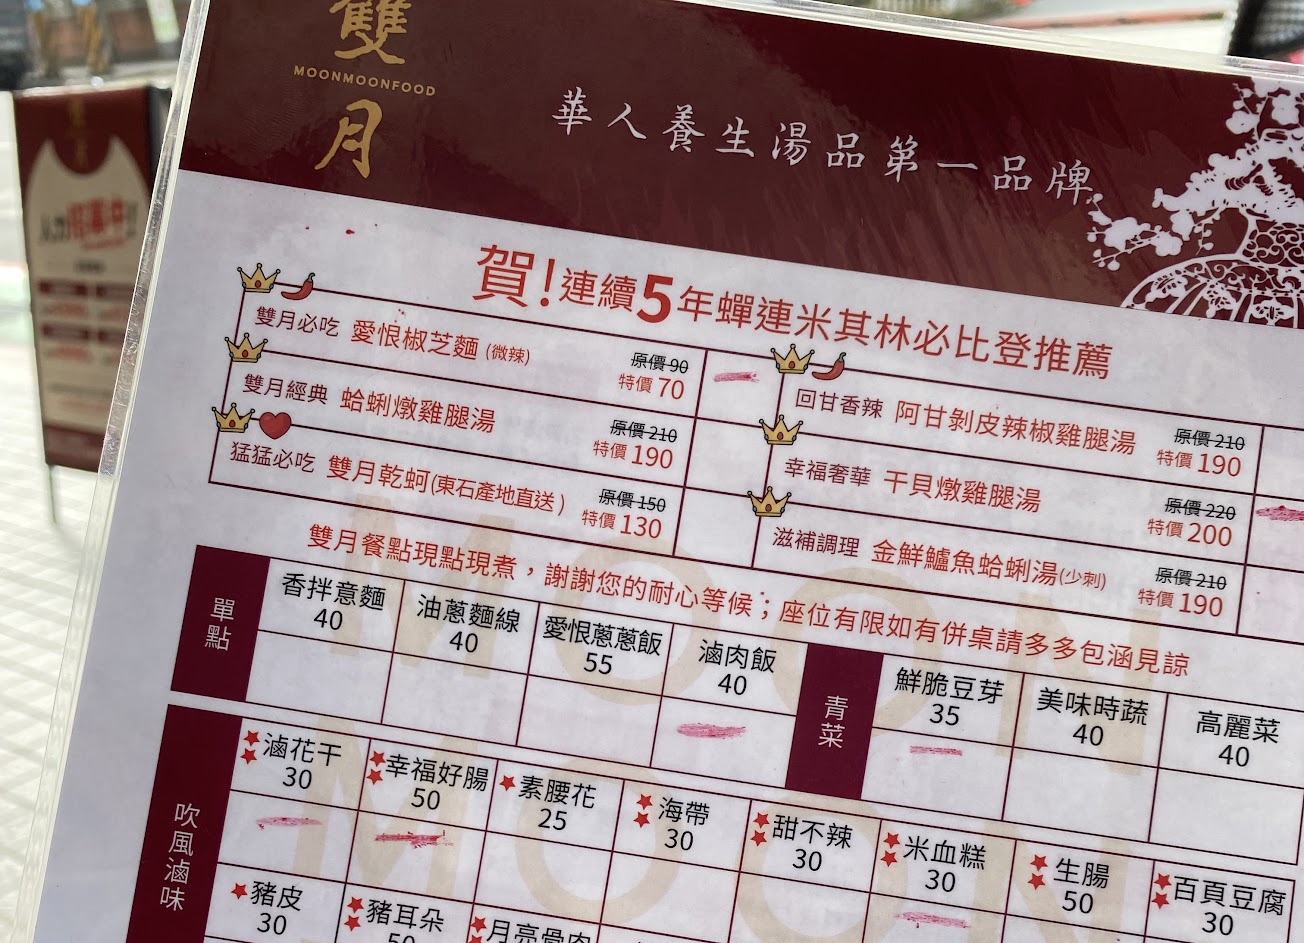 雙月
MOONMOONFOOD
華人養生湯品第一品牌
賀!連續5年蟬連米其林必比登推薦
雙月必吃 愛恨椒芝麵 (微辣) 原價 90 特價 70
雙月經典 蛤蜊燉雞腿湯 原價 210 特價 190
猛猛必吃 雙月乾蚵(東石產地直送) 原價 150 特價 130
回甘香辣 阿甘剝皮辣椒雞腿湯 原價 210 特價 190
幸福奢華 干貝燉雞腿湯 原價 220 特價 200
滋補調理 金鮮鱸魚蛤蜊湯(少刺) 原價 210 特價 190
雙月餐點現點現煮，謝謝您的耐心等候；座位有限如有併桌請多多包涵見諒
MOON
單點
香拌意麵 40
油蔥麵線 40
愛恨蔥蔥飯 55
滷肉飯 40
青菜
鮮脆豆芽 35
美味時蔬 40
高麗菜 40
MOON
吹風滷味
滷花干 30
幸福好腸 50
素腰花 25
海帶 30
甜不辣 30
米血糕 30
生腸 50
百頁豆腐 30
豬皮 30
豬耳朵 50
月亮骨肉